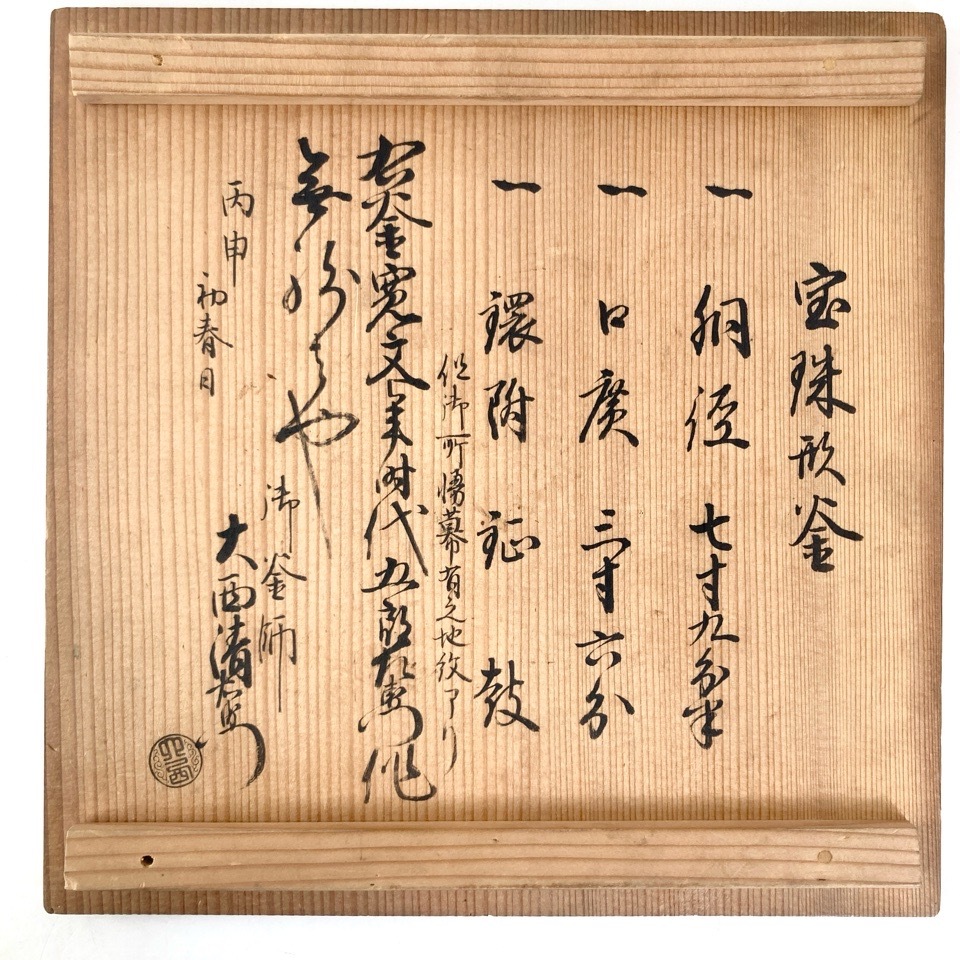 宝珠形釜
一 胴径 七寸九分半
一 口廣 三寸六分
一 環附 鉦鼓
但御所幔幕有之地紋アリ
右釜寛文年時代五郎左衛門作
無紛もの也
丙申 初春日
御釜師
大西清右衛門
大西